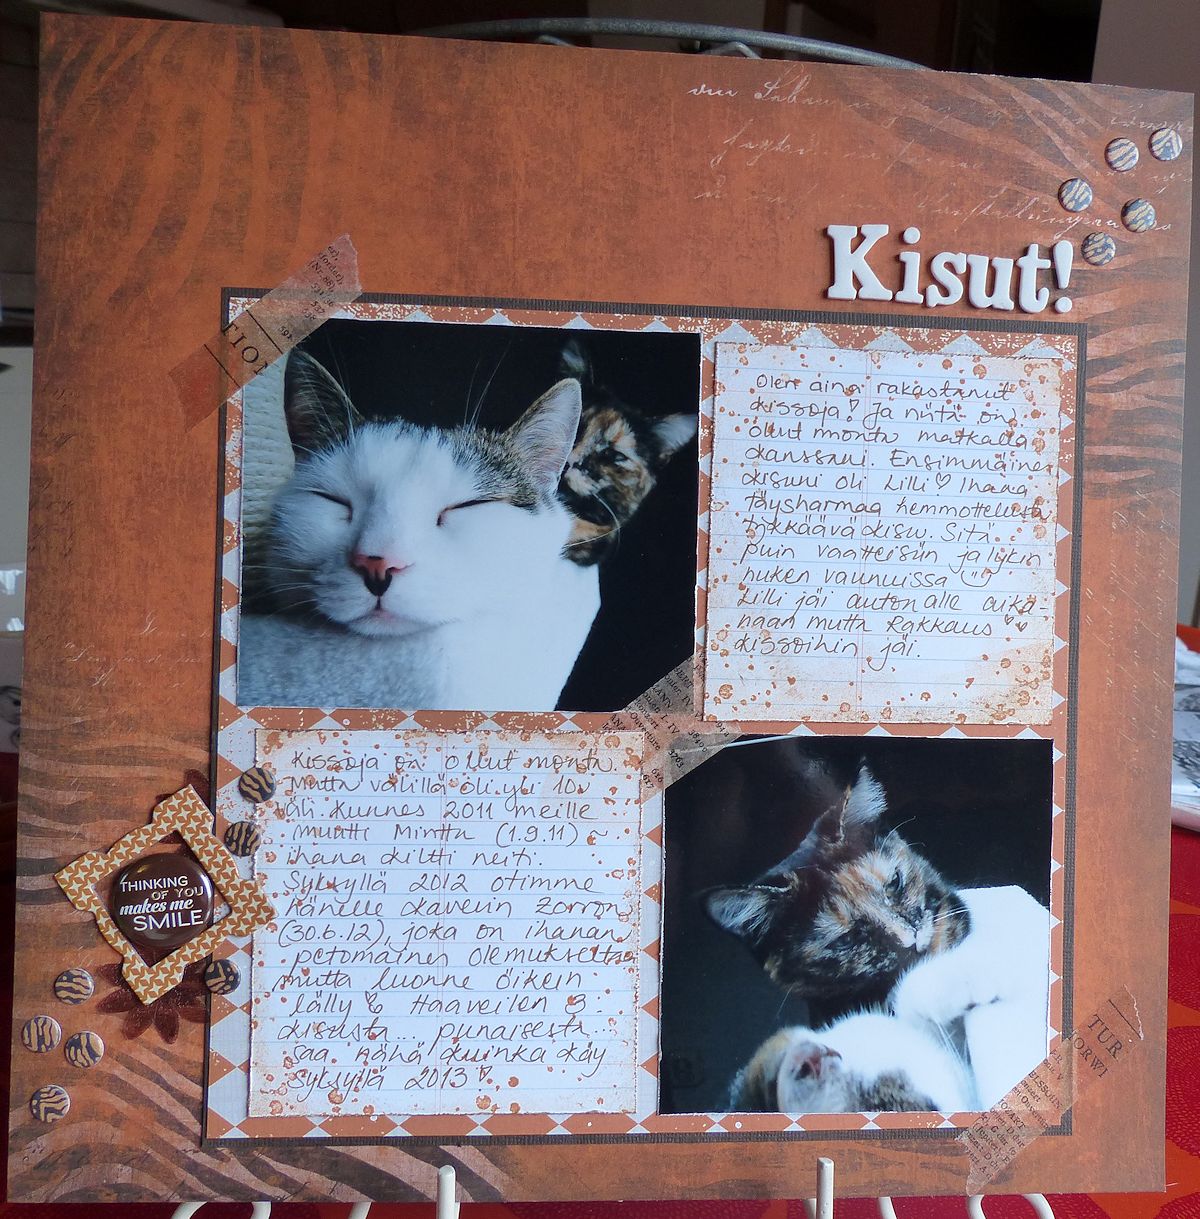 Kisut!
Olen aina rakastanut
kissoja! Ja niitä on
ollut monta matkalla
kanssani. Ensimmäinen
kisuni oli Lilli♡ Ihana
täysharmaa hemmottelusta
tykkäävä kisu. Sitä
puin vaatteisiin ja lykin
nuken vaunuissa
Lilli jäi auton alle aika-
naan mutta Rakkaus
kissoihin jäi.
Kissoja on ollut monta.
Mutta välillä oli yli 10v
väli. Kunnes 2011 meille
muutti Minttu (1.9.11) ~
ihana kiltti neiti.
Syksyllä 2012 otimme
hänelle kaverin Zorron
(30.6.12), joka on ihanan
petomainen olemukselta
mutta luonne oikein
lälly Haaveilen 3:
kisusta... punaisesta...
saa nähä kuinka käy
syksyllä 2013
THINKING
OF YOU
makes me
SMILE
TION
TUR